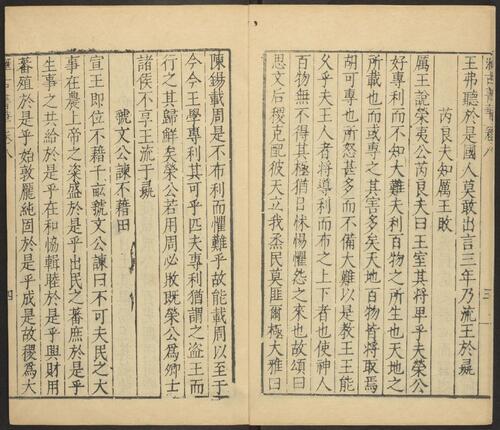 王弗聽於是國人莫敢出言三年乃流王於彘
芮良夫知厲王敗
厲王說榮夷公芮良夫曰王室其將卑乎夫榮公
好專利而不知大難夫利百物之所生也天地之
所載也而或專之其害多矣天地百物皆將取焉
胡可專也所怒甚多而不備大難以是教王王能
久乎夫王人者將導利而布之上下者也使神人
百物無不得其極猶日怵楊懼怨之來也故頌曰
思文后稷克配彼天立我烝民莫匪爾極大雅曰
三
陳錫載周是不布利而懼難乎故能載周以至于
今今王學專利其可乎匹夫專利猶謂之盜王而
行之其歸鮮矣榮公若用周必敗既榮公為卿士
諸侯不享王流于彘
虢文公諫不藉田
宣王即位不藉千畝虢文公諫曰不可夫民之大
事在農上帝之粢盛於是乎出民之蕃庶於是乎
生事之共給於是乎在和恊輯睦於是乎興財用
蕃殖於是乎始敦厖純固於是乎成是故稷為大
四